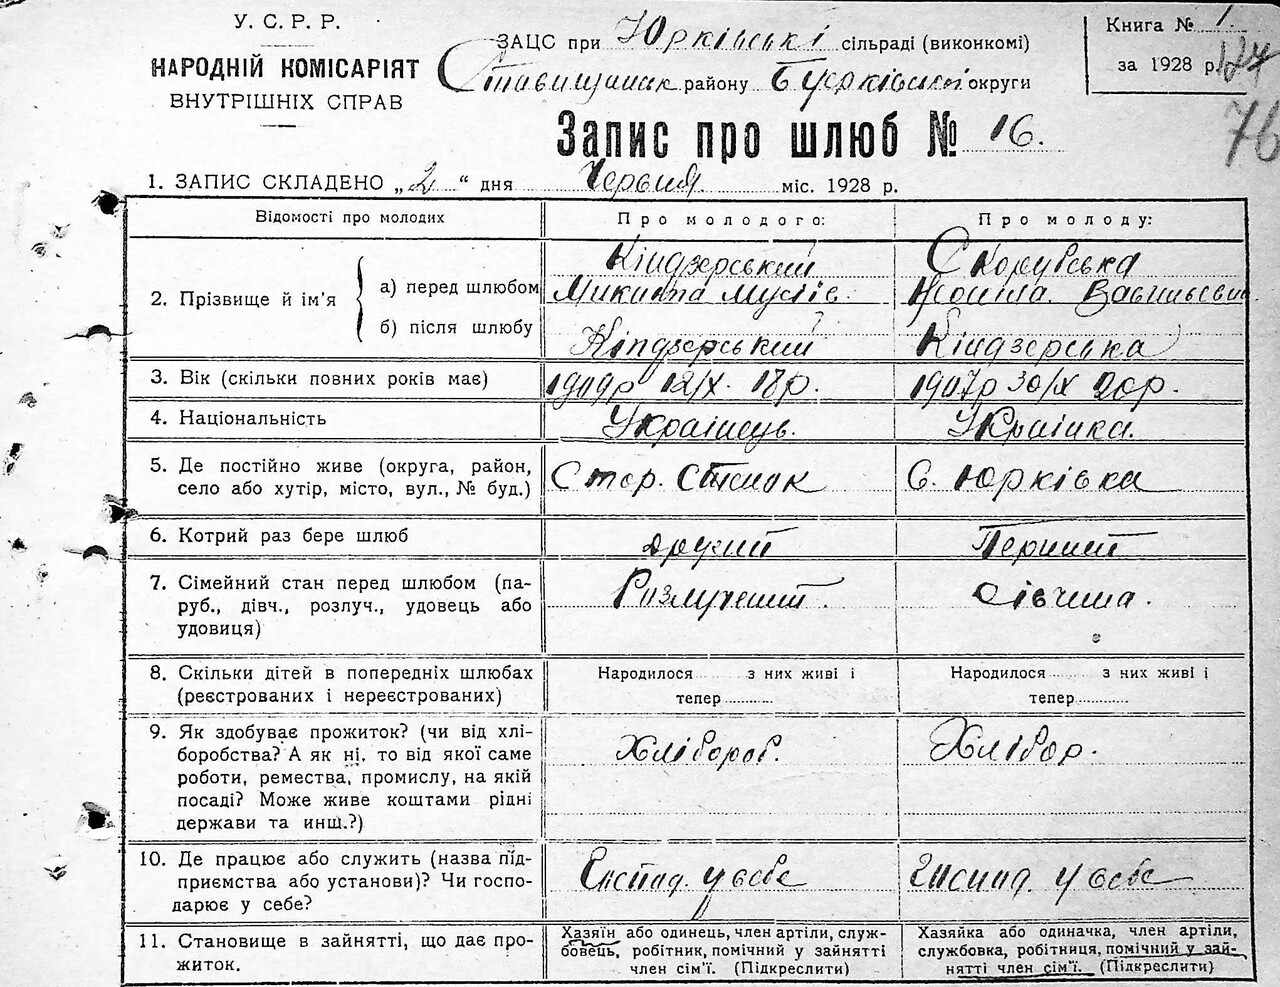 У. С. Р. Р.
НАРОДНІЙ КОМІСАРІЯТ
ВНУТРІШНІХ СПРАВ
ЗАЦС при Юрківські сільраді (виконкомі)
Ставищанськ району округи
Книга № 1.
за 1928 р.
127
76
Запис про шлюб № 16.
1. ЗАПИС СКЛАДЕНО „2“ дня Червня міс. 1928 р.
Відомості про молодих
Про молодого:
Про молоду:
2. Прізвище й ім'я
а) перед шлюбом
Кіндзерський
Микита
Скорубська
б) після шлюбу
Кіндзерський
Кіндзерська
3. Вік (скільки повних років має)
1909р 12/X. 18р.
1907р 30/X 20р.
4. Національність
Українець.
Українка.
5. Де постійно живе (округа, район,
село або хутір, місто, вул., № буд.)
с. Юрківка
6. Котрий раз бере шлюб
другий
Перший
7. Сімейний стан перед шлюбом (па-
руб., дівч., розлуч., удовець або
удовиця)
Розлучений.
Дівчина.
8. Скільки дітей в попередніх шлюбах
(реєстрованих і нереєстрованих)
Народилося з них живі і
тепер
Народилося з них живі і
тепер
9. Як здобуває прожиток? (чи від хлі-
боробства? А як ні, то від якої саме
роботи, ремества, промислу, на якій
посаді? Може живе коштами рідні
держави та инш.?)
Хлібороб.
Хлібор.
10. Де працює або служить (назва під-
приємства або установи)? Чи госпо-
дарює у себе?
Господ. у себе
Господ. у себе
11. Становище в зайнятті, що дає про-
житок.
Хазяїн або одинець, член артілі, служ-
бовець, робітник, помічний у зайнятті
член сім'ї. (Підкреслити)
Хазяйка або одиначка, член артілі,
службовка, робітниця, помічний у зай-
нятті член сім'ї. (Підкреслити)